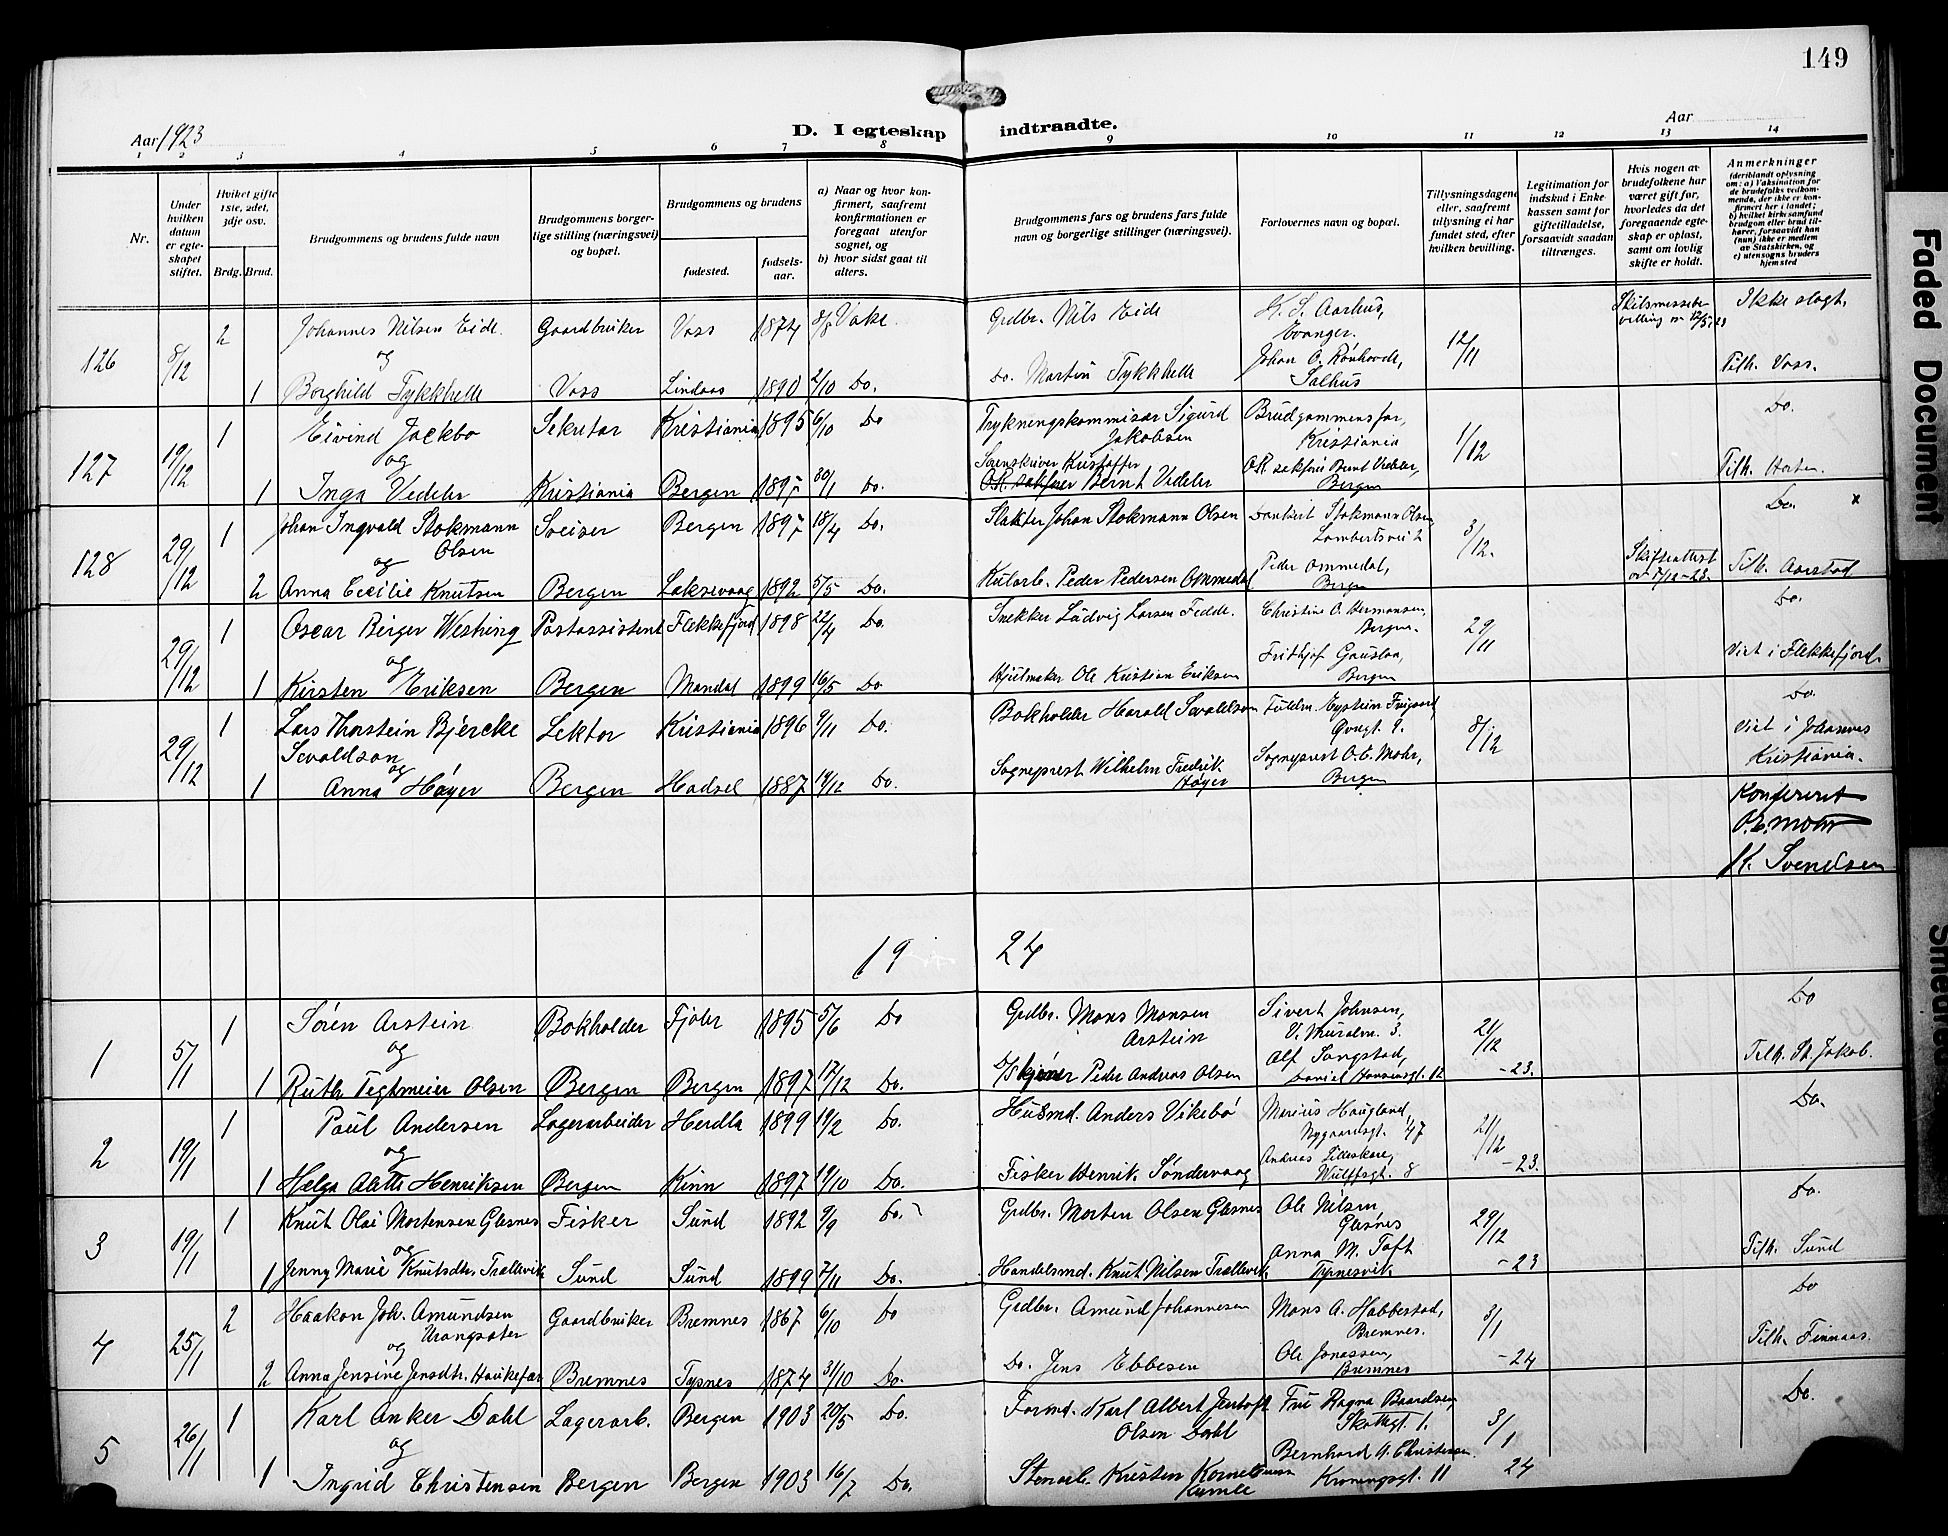 149
Aar 1923
D. I egteskap indtraadte.
Aar
1 2 3 4 5 6 7 8 9 10 11 12 13 14
Nr.
Under hvilken datum er egteskapet stiftet.
Hvilket gifte 1ste, 2det, 3dje osv.
Brdg. Brud.
Brudgommens og brudens fulde navn
Brudgommens borgerlige stilling (næringsvei) og bopæl.
Brudgommens og brudens
fødested.
fødselsaar.
a) Naar og hvor konfirmert, saafremt konfirmationen er foregaat utenfor sognet, og
b) hvor sidst gaat til alters.
Brudgommens fars og brudens fars fulde navn og borgerlige stillinger (næringsvei).
Forlovernes navn og bopæl.
Tillysningsdagene eller, saafremt tillysning ei har fundet sted, efter hvilken bevilling.
Legitimation for indskud i Enkekassen samt for giftetilladelse, forsaavidt saadan tiltrænges.
Hvis nogen av brudefolkene har været gift før, hvorledes da det foregaaende egteskap er opløst, samt om lovlig skifte er holdt.
Anmerkninger
(deriblandt oplysning om: a) Vaksination for de brudefolks vedkommende, der ikke er konfirmert her i landet; b) hvilket kirkesamfund brudgom eller brud tilhører, forsaavidt han (hun) ikke er medlem av Statskirken, og c) utensogns bruders hjemsted
126 8/12 2 Johannes Nilsen Eide Gaardbruker Voss 1874 8/8 Vake. Grdbr. Nils Eide K. S. Aarhus, Evanger. 12/11 Ikke slagt.
og Johan O.
1 Borghild Tykkhelle Voss Lindaas 1890 2/10 Do. Do. Martin Tykkhelle Salhus Tilh. Voss.
127 19/12 1 Eivind Jackbo Sekretær Kristiania 1895 6/10 Do Trykningskommisær Sigurd Jakobsen Brudgommens far, Kristiania 1/12 Do.
og Sorenskriver Kristoffer
1 Inga Vedeler Kristiania Bergen 1895 30/1 Do. O.R. sakfører Bernt Vedeler O.R. sakfører Bernt Vedeler, Bergen Tilh. Horten.
128 29/12 1 Johan Ingvald Stokmann Olsen Sveiser Bergen 1897 18/4 Do. Slakter Johan Stokmann Olsen Stokmann Olsen 3/12. Do. x
og
2 Anna Cecilie Knutsen Bergen Laksevaag 1892 5/5 Do. Peder Pedersen Ommedal Peder Ommedal, Bergen Skifteattest av 1/12-23. Tilh. Aarstad
29/12 1 Oscar Birger Westring Postassistent Flekkefjord 1898 22/4 Do. Snekker Ludvig Larsen Fedde. Christine O. Hermansen, Bergen. 29/11 Do.
og
1 Kirsten Eriksen Bergen Mandal 1899 16/5 Do Hjulmaker Ole Kristian Eriksen Fridthjof Gauslaa, Bergen Viet i Flekkefjord
29/12 1 Lars Thorstein Bjercke Sevaldson Lektor Kristiania 1896 9/11 Do. Bokholder Harald Sevaldson 8/12 Do.
og Viet i Johannes Kristiania.
1 Anna Høyer Bergen Hadsel 1887 14/12 Do. Sogneprest Wilhelm Fredrik Høyer Sogneprest O. E. Mohr, Bergen
Konfereret
O. E. Mohr
K. Svendsen
19 24
1 5/1 1 Søren Arstein Bokholder Fjaler 1895 5/6 Do Grdbr. Mons Monsen Arstein Sivert Johnsen, 3. 21/12 -23. Do
og
1 Ruth Teghmeier Olsen Bergen Bergen 1897 17/12 Do. Peder Andreas Olsen Alf Sangstad, Daniel Hansensgt. 12 Tilh. St. Jakob.
2 19/1 1 Paul Andersen Lagerarbeider Herdla 1899 14/2 Do. Husmd. Anders Vikebø Marius Haugland, Nygaardsgt. 47 21/12 -23. Do.
og
1 Helga Alette Henriksen Bergen Kinn 1897 14/10 Do. Fisker Henrik Søndervaag Andreas Lilleskare, Wulffsgt. 8
3 19/1 1 Knut Olai Mortensen Glesnes Fisker Sund 1892 9/9 Do. Grdbr. Morten Olsen Glesnes Ole Nilsen, Glesnes 29/12 -23 Do.
og
1 Jenny Marie Knutsdtr. Trællevik Sund Sund 1899 7/11 Do. Handelsmd. Knut Nilsen Trællevik. Anna M. Toft Tilh. Sund
4 25/1 2 Haakon Joh. Amundsen Urangsæter Gaardbruker Bremnes 1867 6/10 Do Grdbr. Amund Johannesen Mons A. Habbestad, Bremnes. 3/1 -24 Do
og
2 Anna Jensine Jensdtr. Haukefær Bremnes Tysnes 1874 31/10 Do. Do. Jens Ebbesen Ole Jonassen, Bremnes Tilh. Finnaas.
5 26/1 1 Karl Anker Dahl Lagerarb. Bergen 1903 20/5 Do. Formd. Karl Albert Jentoft Olsen Dahl Fru Ragna Baardsen, Skottegt. 1. 3/1 24 Do.
og
1 Ingrid Christensen Bergen Bergen 1903 16/7 Do. Stenarb. Kristen Kornelius Bernhard A. Christensen Kroningsgt. 11
Faded Document